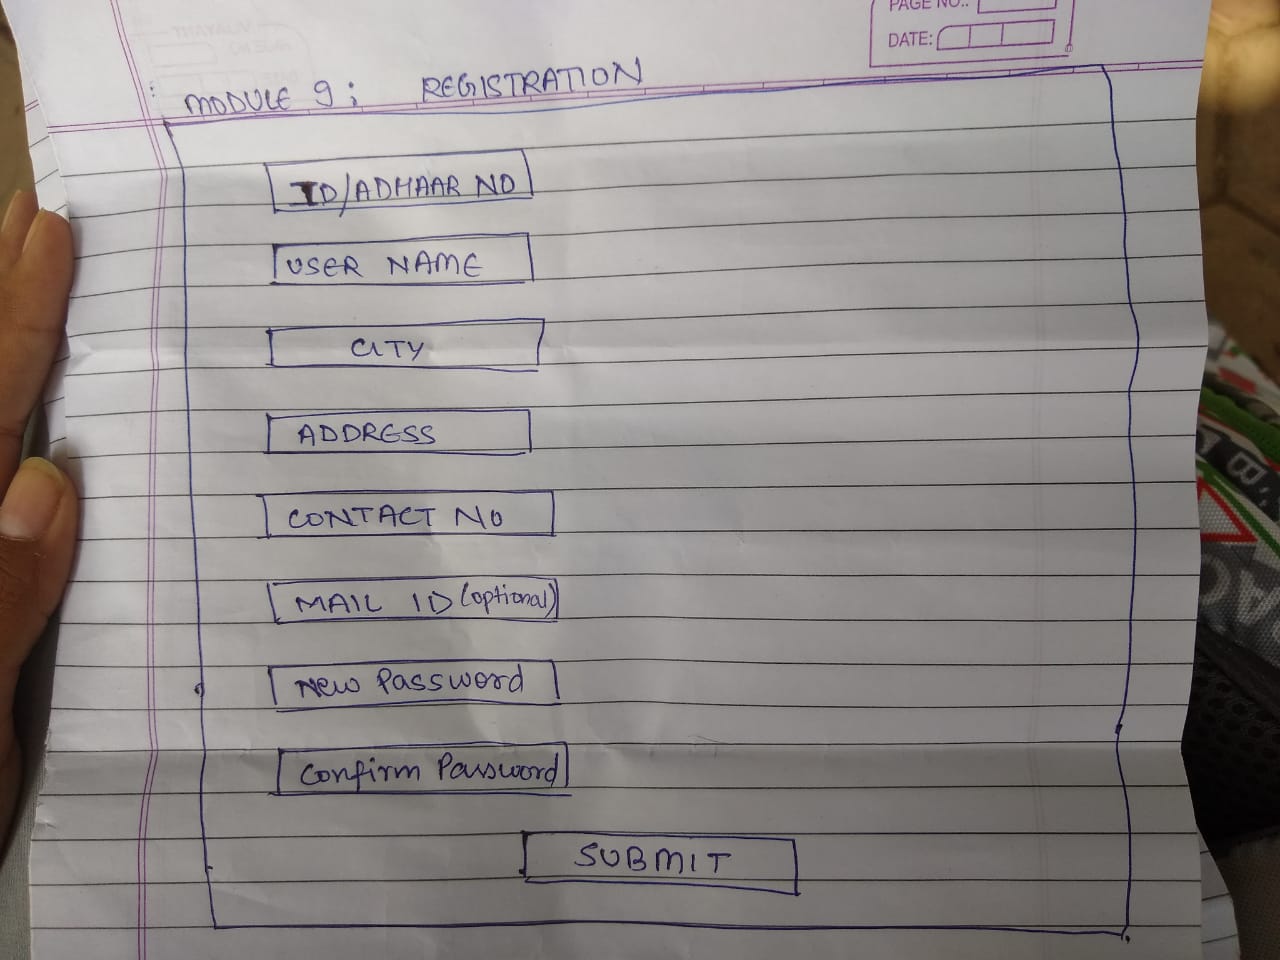 PAGE NO.:
DATE:
MODULE 9: REGISTRATION
ID/ADHAAR NO
USER NAME
CITY
ADDRESS
CONTACT NO
MAIL ID (optional)
New Password
Confirm Password
SUBMIT